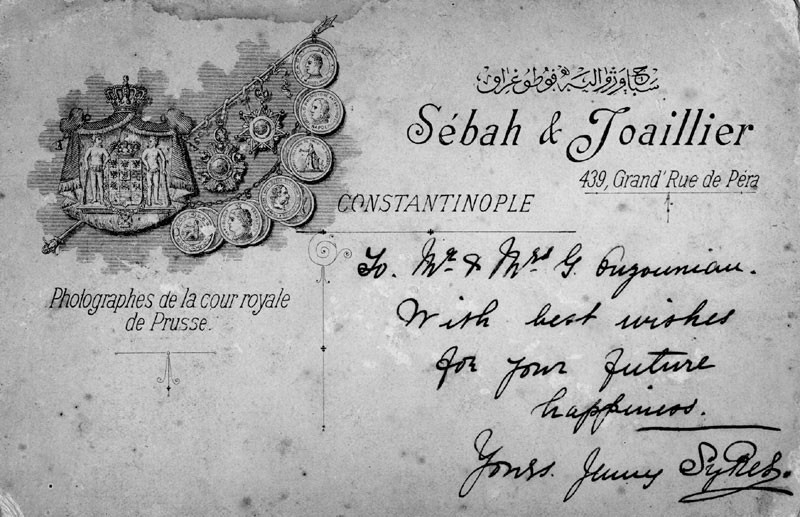 سباح وژوالیه فوطوغراف
Sébah & Joaillier
439, Grand'Rue de Péra
CONSTANTINOPLE
Photographes de la cour royale
de Prusse.
To. Mr. & Mrs G. Ouzounian.
With best wishes
for your future
happiness.
Yours. Jenny Sykes.